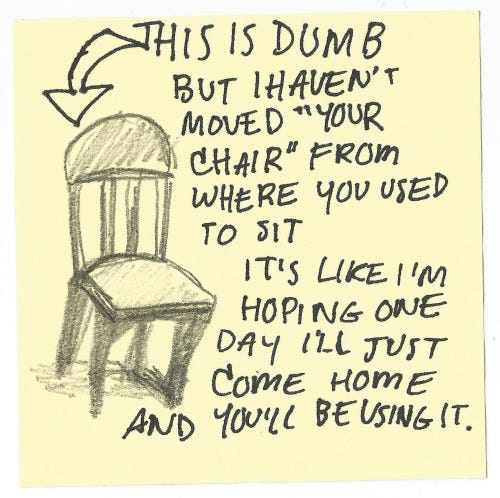 THIS IS DUMB
BUT I HAVEN'T
MOVED "YOUR
CHAIR" FROM
WHERE YOU USED
TO SIT
IT'S LIKE I'M
HOPING ONE
DAY I'LL JUST
COME HOME
AND YOU'LL BE USING IT.